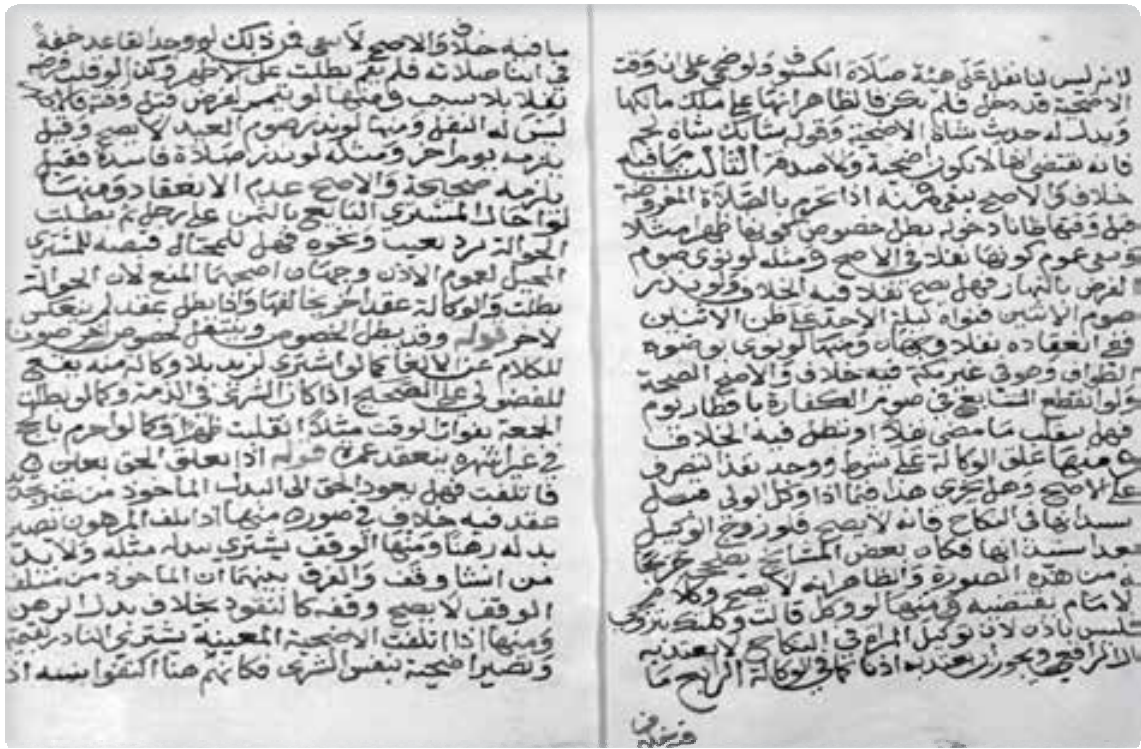 لانه ليس لنا نفل على هيئة صلاة الكسوف ولو ضحى على ان وقت
الاضحية قد دخل فلم يكن فالظاهر انها على ملك مالكها
ويدل له حديث شاة الاضحية وقوله شاتك شاة لحم
فانه يقتضي انها لا تكون اضحية ولا صدقة الثالث ما فيه
خلاف والاصح يبقى فمنه اذا تحرم بالصلاة المفروضة
قبل وقتها ظانا دخوله بطل خصوص كونها ظهرا مثلا
ويبقى عموم كونها نفلا في الاصح ومثله لو نوى صوم
الفرض بالنهار فهل يصح نفلا فيه الخلاف ولو نذر
صوم الاثنين فنواه ليلة الاحد على ظن الاثنين
ففي انعقاده نفلا وجهان ومنها لو نوى بوضوه
الطواف وهو في غير مكة فيه خلاف والاصح الصحة
ولو انقطع التتابع في صوم الكفارة بافطار يوم
فهل ينقلب ما مضى نفلا او تبطل فيه الخلاف
ومنها علق الوكالة على شرط ووجد نفذ التصرف
على الاصح وهل يجري هذا فيما اذا وكل الولي قبل
استيذانها في النكاح فانه لا يصح فلو زوج الوكيل
بعد استيذانها فكان بعض المشايخ يصحح تخريجا
من هذه الصورة والظاهر انه لا يصح وكلام
الامام يقتضيه ومنها لو وكل قالت وكلتك بتزويجي
فليس باذن لان توكيل المراة في النكاح لا يعتد به
قال الرافعي ويجوز ان يعتد به اذنا كما في الوكالة الرابع ما
ما فيه خلاف والاصح لا يبقى فمن ذلك لو وجد القاعد خفة
في اثنا صلاته فلم يقم بطلت على الاظهر وكذا لو قلب فرضه
نفلا بلا سبب ومنها لو تيمم لفرض قبل وقته فالاصح
ليس له النفل ومنها لو نذر صوم العيد لا يصح وقيل
يلزمه يوم اخر ومثله لو نذر صلاة فاسدة فقيل
يلزمه صحيحة والاصح عدم الانعقاد ومنها
لو احال المشتري البايع بالثمن على رجل ثم بطلت
الحوالة برد بعيب ونحوه فهل للمحتال قبضه للمشتري
المحيل لعموم الاذن وجهان اصحهما المنع لان الحوالة
بطلت والوكالة عقد اخر يخالفها واذا بطل عقد لم ينعكس
لاخر قوله وقد يبطل الخصوص وينتقل لخصوص اخر صون
للكلام عن الالغا كما لو اشترى لزيد بلا وكالة منه يقع
للفضولي على الصحيح اذا كان الشرى في الذمة وكما لو بطلت
الجمعة بفوات الوقت مثلا انقلبت ظهرا وكما لو احرم بالحج
في غير اشهره ينعقد عمرة قوله اذا تعلق الحق بعين
فاتلفت فهل يعود الحق الى البدل الماخوذ من غير تجديد
عقد فيه خلاف في صوره منها اذا تلف المرهون تصير
بدله رهنا ومنها الوقف يشتري ببدله مثله ولا بد
من انشا وقف والفرق بينهما ان الماخوذ من متلف
الوقف لا يصح وقفه كالنقود بخلاف بدل الرهن
ومنها اذا اتلفت الاضحية المعينة يشتري الناذر بقيمتها
وتصير اضحية بنفس الشرى فكانهم هنا اكتفوا بنيته اذ